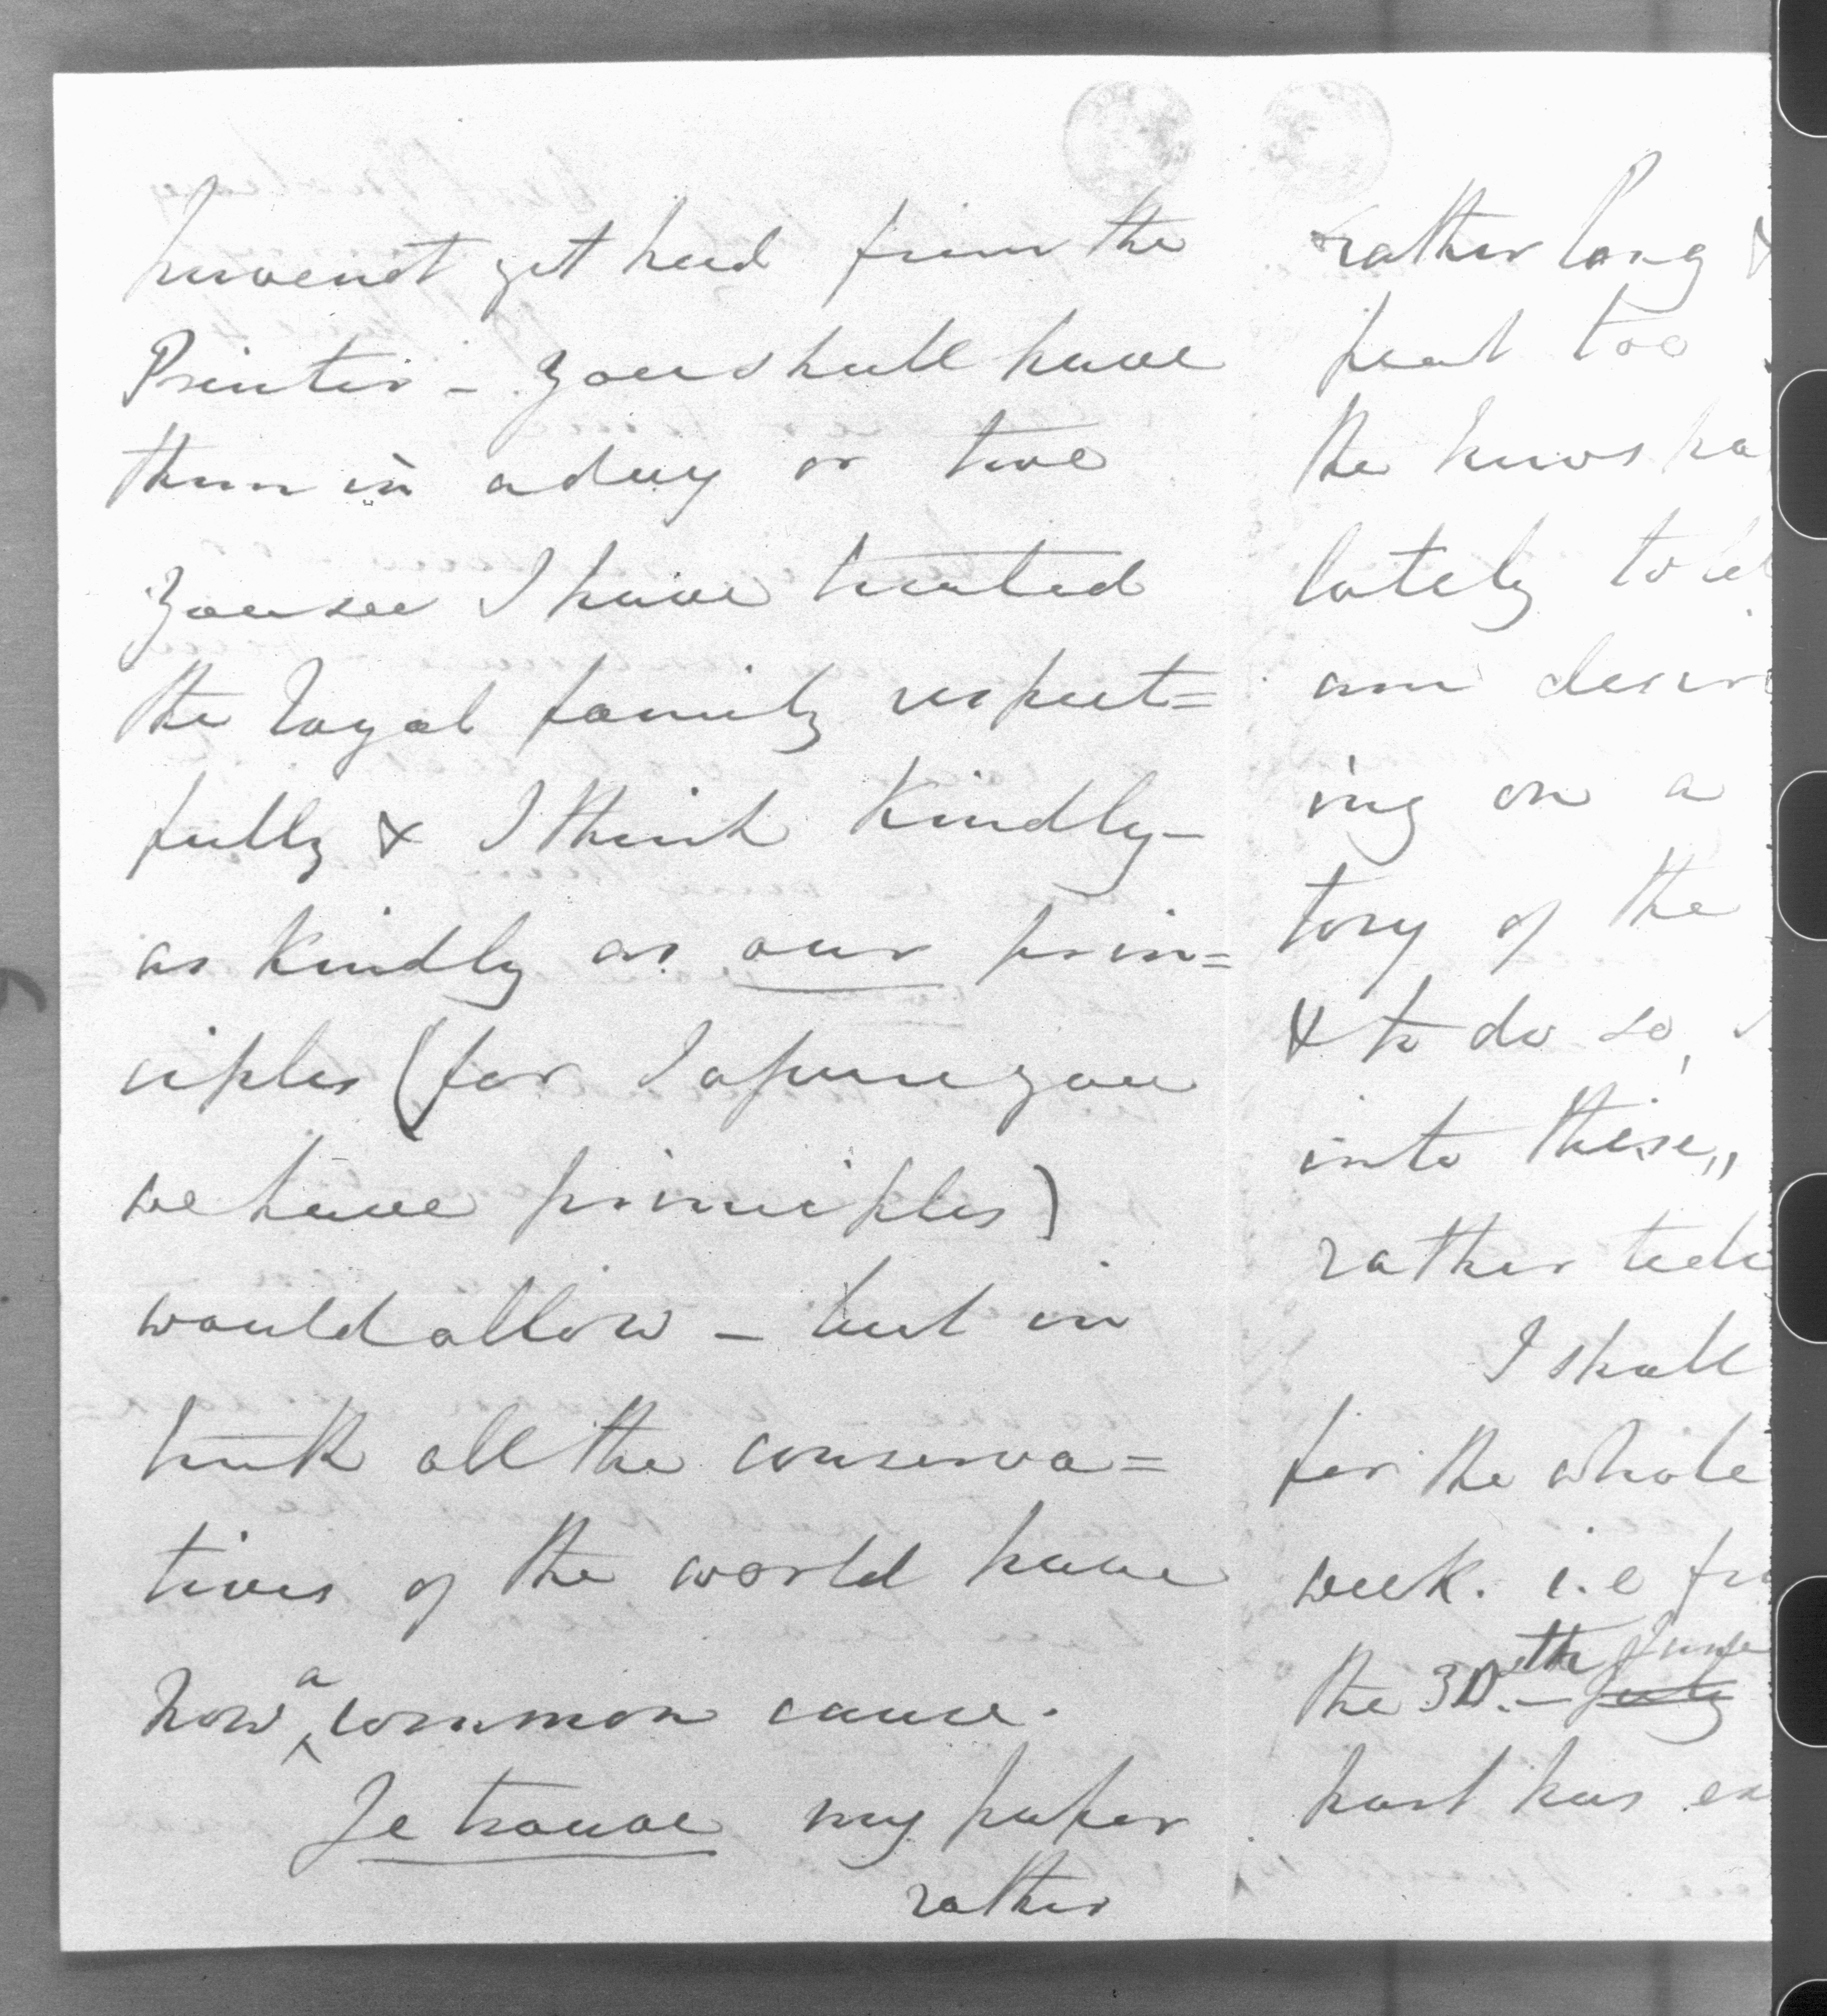 have not yet had from the
Printer – You shall have
them in a day or two
You see I have treated
the loyal family respect=
fully & I think Kindly –
as Kindly as our prin=
ciples (for I assure you
we have principles)
would allow – but in
truth all the conserva=
tives of the world have
now a common cause.
Je trouve my paper
rather
rather long &
too
the
lately
am
ing on a
tory of the
& to do so,
into these,,
rather
I shall
for the whole
week. i.e
the 30.th – June July
has